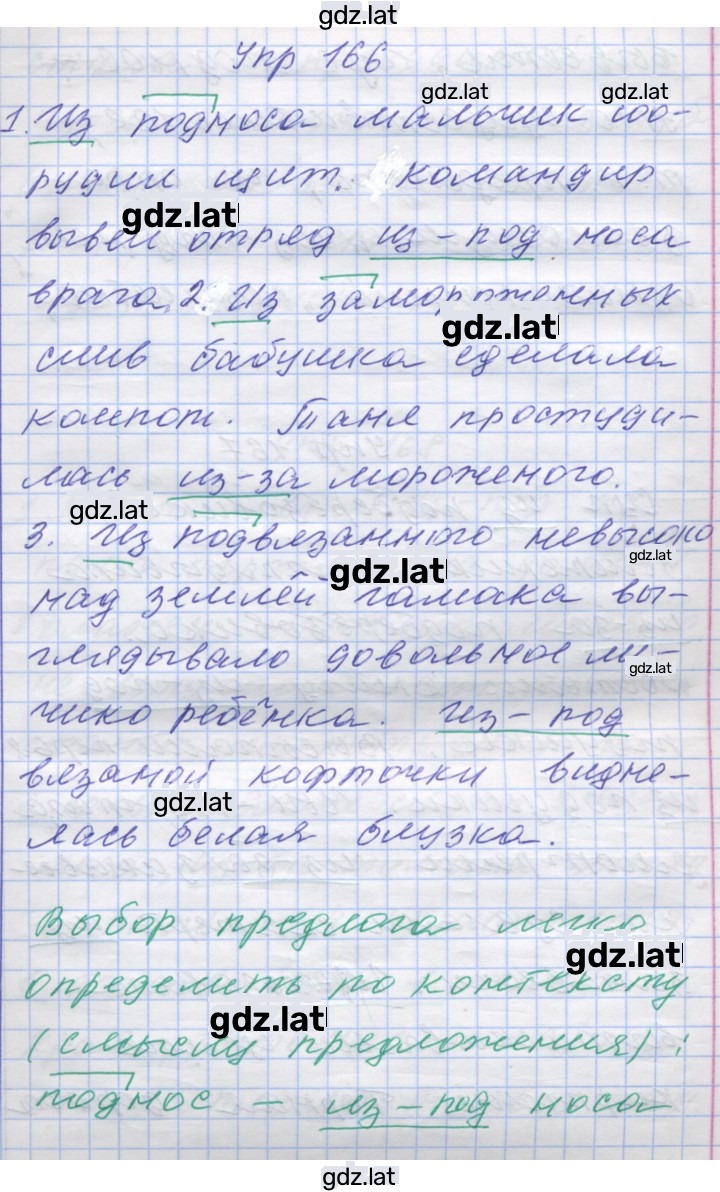 gdz.lat
Упр 166
gdz.lat gdz.lat
1. Из подноса мальчик соо-
рудил щит. Командир
gdz.lat
вывел отряд из-под носа
врага. 2. Из замороженных
gdz.lat
слив бабушка сделала
компот. Таня простуди-
лась из-за мороженого.
gdz.lat
3. Из подвязанного невысоко
gdz.lat
gdz.lat
над землёй гамака вы-
глядывало довольное ли-
gdz.lat
чико ребёнка. Из-под
вязаной кофточки видне-
gdz.lat
лась белая блузка.
Выбор предлога легко
gdz.lat
определить по контексту
gdz.lat
(смыслу предложения):
поднос - из-под носа
gdz.lat